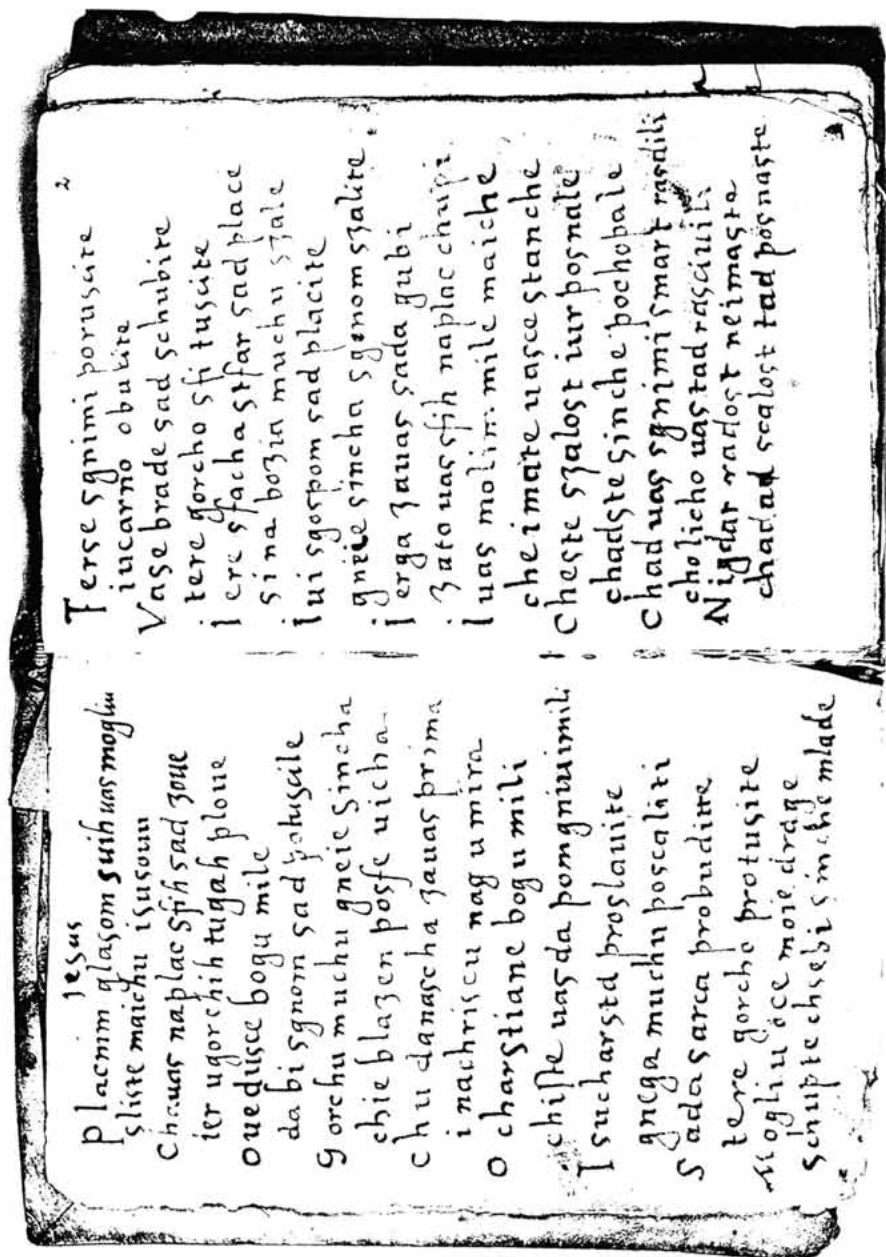 Jesus
placnim glasom suih uas mogliu
sliste maichu isusoui
Chauas naplac sfih sad zoue
ier ugorchih tugah ploue
oue diusce bogu mile
da bi sgnom sad potuscile
Gorchu muchu gneie sincha
chie blazen posfe uicha
chu danascha zauas prima
i nachriscu nag umira
O charstiane bogu mili
chiste uas da pomgniu imili
Isucharsta proslauite
gnega muchu poscaliti
Sada sarca probudite
tere gorcho protusite
Mogliu oce moie drage
schupte chsebi sinche mlade
2
Terse sgnimi poruscite
iucarno obucite
Vase brade sad schubite
tere gorcho sfi tuscite
iere sfacha stfar sad place
sina bozia muchu szale
iui sgospom sad placite
gneie sincha sgnom szalite
ierga zauas sada gubi
zato uas sfih naplac chupi
iuas molim mile maiche
che imate uasce stanche
Cheste szalost iur posnale
chadste sinche pochopale
Chad uas sgnimi smart rasdili
cholicho uas tad rasciuili
Nigdar radost neimaste
chadad scalost tad posnaste